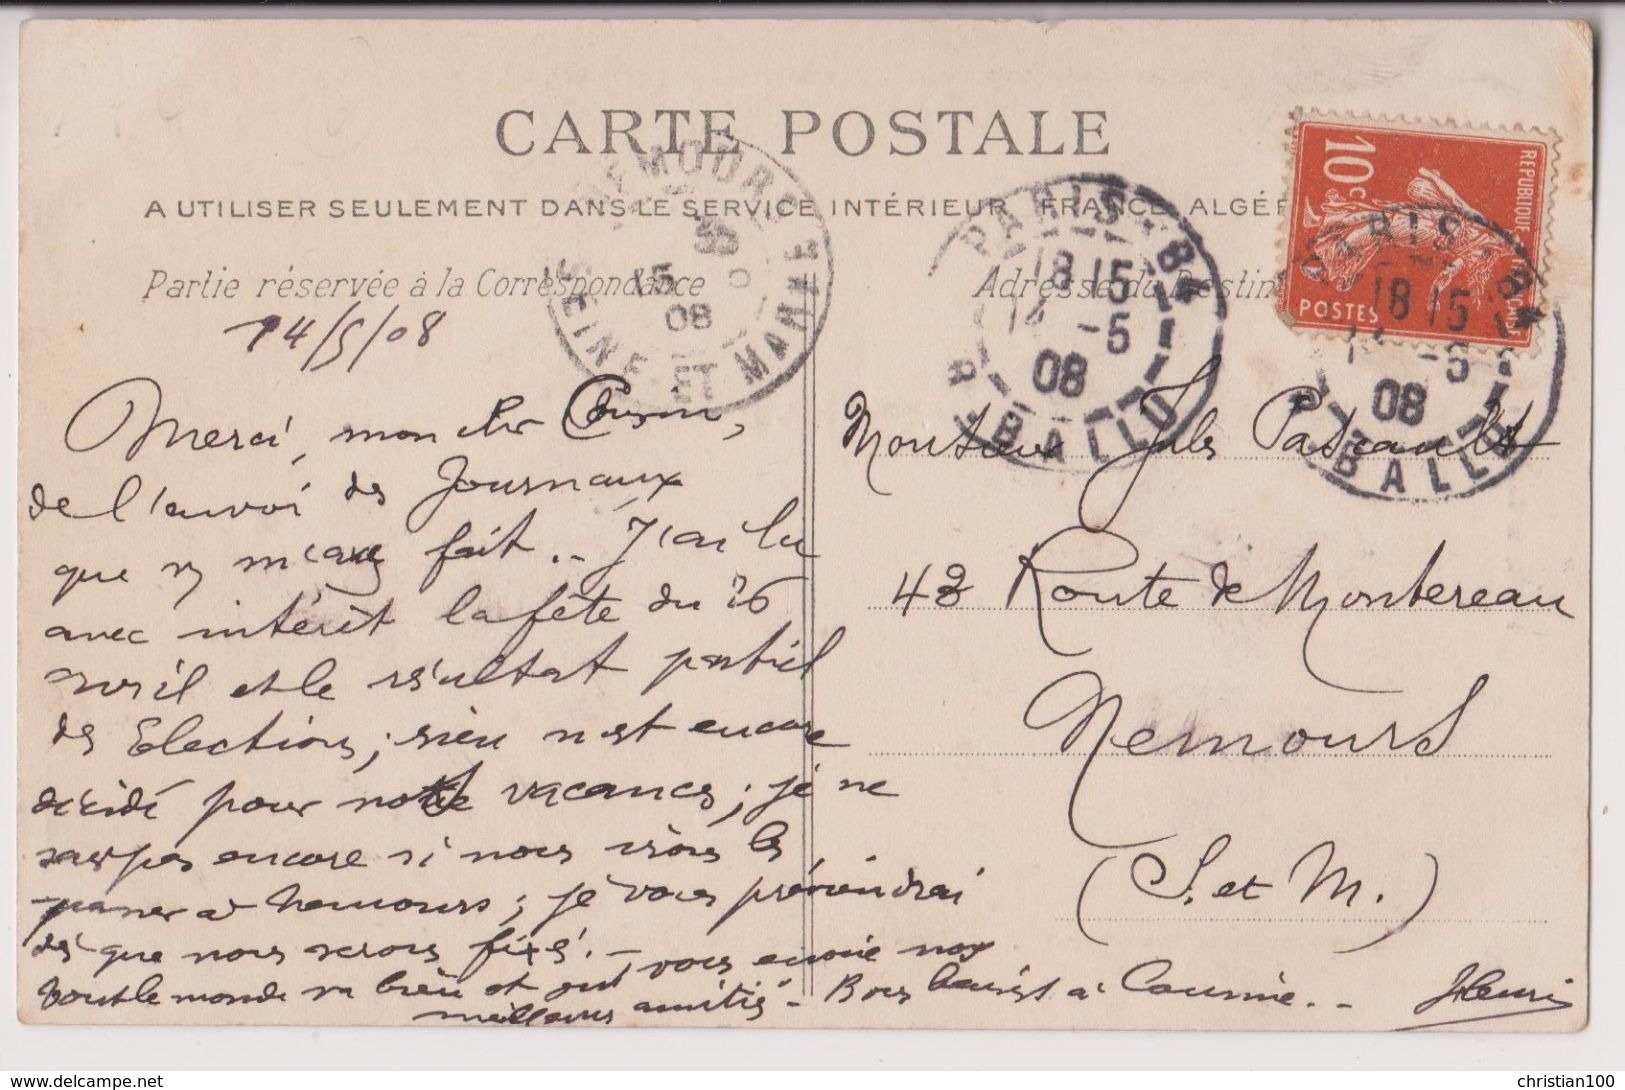 CARTE POSTALE
A UTILISER SEULEMENT DANS LE SERVICE INTÉRIEUR FRANCE, ALGÉR
Partie réservée à la Correspondance
Adresse du Destin
NEMOURS
SEINE ET MARNE
15
5
08
PARIS-8
18 15
14 -5
08
R. BALLU
PARIS 8
18 15
-5
08
BALLU
RÉPUBLIQUE
10c
POSTES
14/5/08
Merci, mon cher Cousin,
de l'envoi des Journaux
que m'avez fait.. J'ai lu
avec intérêt la fête du 26
avril et le résultat partiel
des Elections; rien n'est encore
décidé pour nos vacances; je ne
sais pas encore si nous irons les
passer à Nemours; je vous préviendrai
dès que nous serons fixés. -
tout le monde va bien et vous envoie nos
meilleures amitiés - Bons baisers à Cousine. -
Henri
Monsieur Jules Pascault
48 Route de Montereau
Nemours
(S. et M.)
delcampe.net
christian100